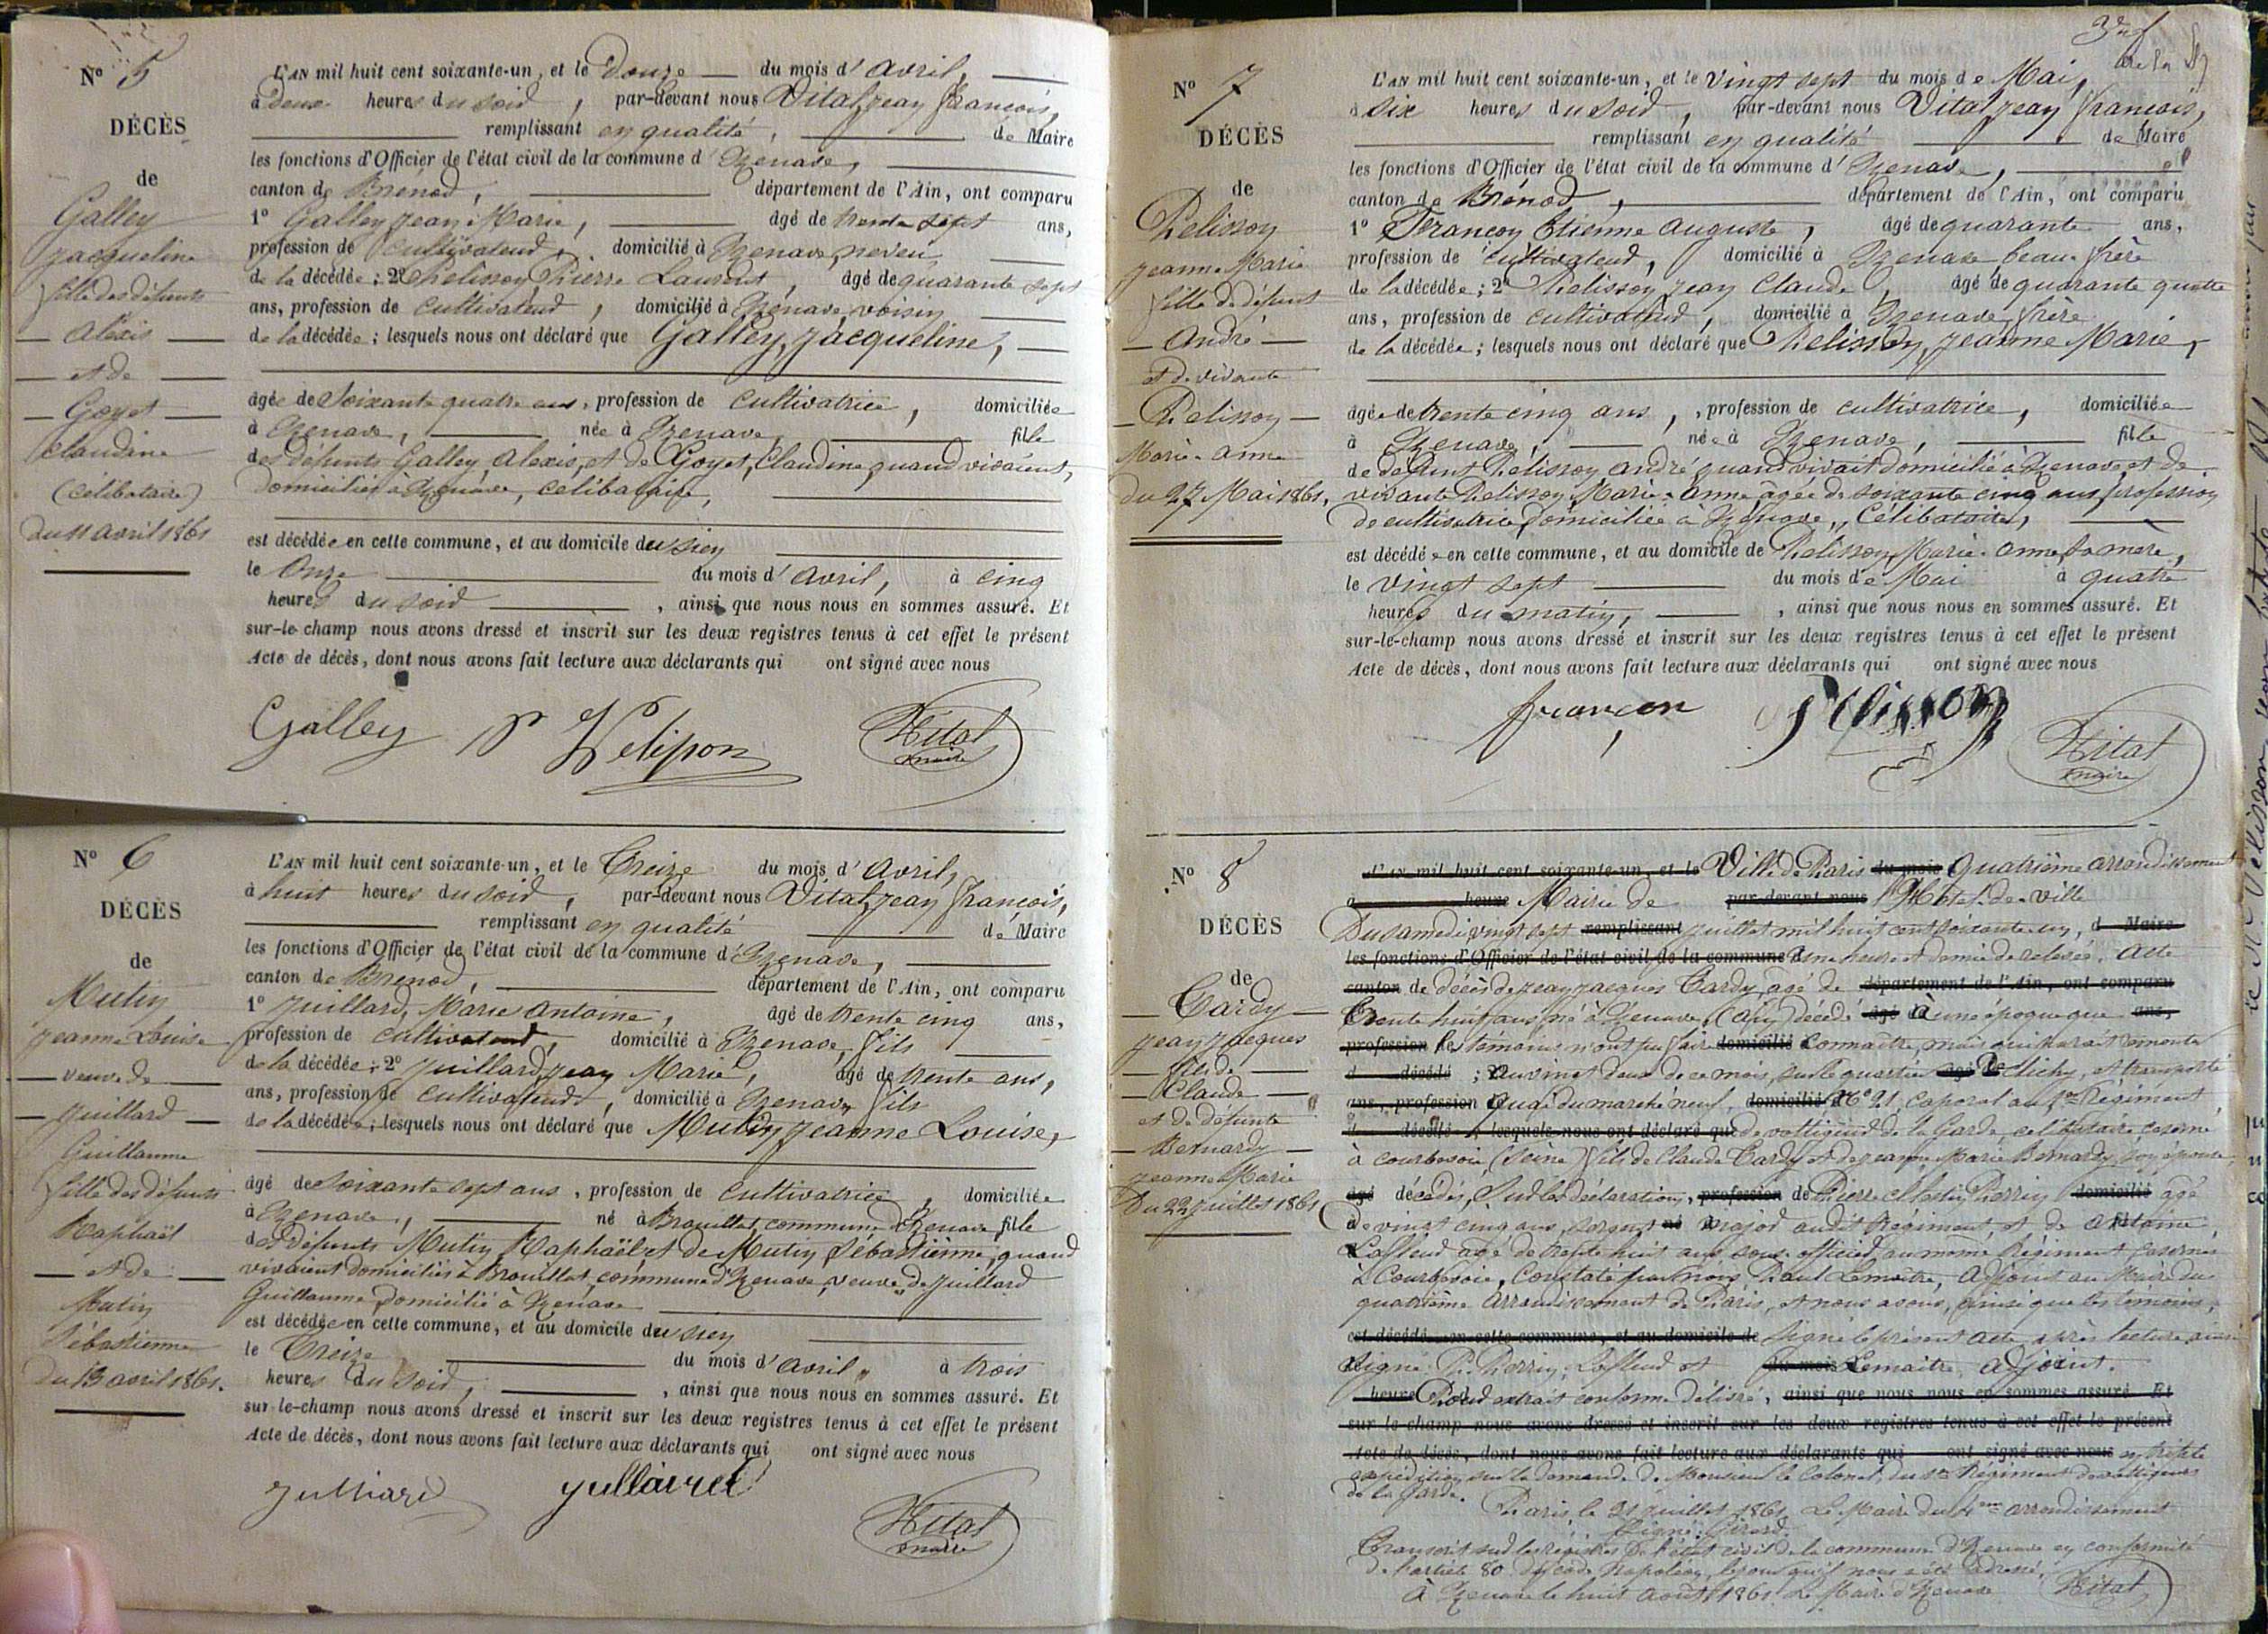 N° 5
DÉCÈS
de
Galley
Jacqueline
fille des défunts
Alexis
et de
Goyet
Claudine
(célibataire)
du 11 avril 1861
L'AN mil huit cent soixante-un, et le Douze du mois d'avril,
à Deux heures du soir, par-devant nous Vital Jean François,
remplissant en qualité, de Maire
les fonctions d'Officier de l'état civil de la commune d'Izenave,
canton de Brénod, département de l'Ain, ont comparu
1° Galley Jean Marie, âgé de trente sept ans,
profession de cultivateur, domicilié à Izenave, neveu
de la décédée; 2° Pelisson Pierre Laurent, âgé de quarante sept
ans, profession de cultivateur, domicilié à Izenave, voisin
de la décédée; lesquels nous ont déclaré que Galley, Jacqueline,
âgée de Soixante quatre ans, profession de cultivatrice, domiciliée
à Izenave, née à Izenave, fille
des défunts Galley, Alexis, et de Goyet, Claudine, quand vivaient,
domiciliés à Izenave, célibataire,
est décédée en cette commune, et au domicile du sien
le Onze du mois d'avril, à cinq
heures du soir, ainsi que nous nous en sommes assuré. Et
sur-le-champ nous avons dressé et inscrit sur les deux registres tenus à cet effet le présent
Acte de décès, dont nous avons fait lecture aux déclarants qui ont signé avec nous
Galley P Pelisson Vital
maire
N° 6
DÉCÈS
de
Mutin
Jeanne Louise
veuve de
Juillard
Guillaume
fille des défunts
Raphaël
et de
Mutin
Sébastienne
du 13 avril 1861.
L'AN mil huit cent soixante-un, et le Treize du mois d'Avril,
à huit heures du soir, par-devant nous Vital Jean François,
remplissant en qualité de Maire
les fonctions d'Officier de l'état civil de la commune d'Izenave,
canton de Brenod, département de l'Ain, ont comparu
1° Juillard, Marie Antoine, âgé de trente cinq ans,
profession de cultivateur, domicilié à Izenave, fils
de la décédée; 2° Juillard, Jean Marie, âgé de trente ans,
ans, profession de cultivateur, domicilié à Izenave fils
de la décédée; lesquels nous ont déclaré que Mutin, Jeanne Louise,
âgé de Soixante sept ans, profession de cultivatrice, domiciliée
à Izenave, né à Brouillat, commune d'Izenave fille
des défunts Mutin Raphaël et de Mutin Sébastienne, quand
vivaient domiciliés à Brouillat, commune d'Izenave, veuve de Juillard
Guillaume, domicilié à Izenave
est décédée en cette commune, et au domicile du sien
le Treize du mois d'avril, à trois
heures du soir, ainsi que nous nous en sommes assuré. Et
sur-le-champ nous avons dressé et inscrit sur les deux registres tenus à cet effet le présent
Acte de décès, dont nous avons fait lecture aux déclarants qui ont signé avec nous
Vital
maire
N° 7
DÉCÈS
de
Pelisson
Jeanne Marie
fille de défunt
André
et de vivante
Pelisson
Marie-anne
du 27 Mai 1861,
L'AN mil huit cent soixante-un, et le vingt sept du mois de Mai,
à six heures du soir, par-devant nous Vital Jean François,
remplissant en qualité de Maire
les fonctions d'Officier de l'état civil de la commune d'Izenave,
canton de Brénod, département de l'Ain, ont comparu
1° Françon Etienne Auguste, âgé de quarante ans,
profession de cultivateur, domicilié à Izenave beau-frère
de la décédée; 2° Pelisson Jean Claude, âgé de quarante quatre
ans, profession de cultivateur, domicilié à Izenave, frère
de la décédée; lesquels nous ont déclaré que Pelisson, Jeanne Marie,
âgée de trente cinq ans, profession de cultivatrice, domiciliée
à Izenave, née à Izenave, fille
de défunt Pelisson André quand vivait domicilié à Izenave et de
vivante Pelisson Marie-Anne âgée de soixante cinq ans, profession
de cultivatrice, domiciliée à Izenave, Célibataire,
est décédée en cette commune, et au domicile de Pelisson, Marie-anne, sa mère,
le vingt sept du mois de Mai à quatre
heures du matin, ainsi que nous nous en sommes assuré. Et
sur-le-champ nous avons dressé et inscrit sur les deux registres tenus à cet effet le présent
Acte de décès, dont nous avons fait lecture aux déclarants qui ont signé avec nous
françon Pelisson Vital
maire
N° 8
DÉCÈS
de
Tardy
Jean Jacques
fils de
Claude
et de défunte
Bernardy
Jeanne Marie
Du 22 juillet 1861
L'AN mil huit cent soixante-un, et le Ville de Paris du mois Quatrième arrondissement
à heure Mairie de par-devant nous l'Hôtel-de-ville
Du samedi vingt sept remplissant juillet mil huit cent soixante un, d Maire
les fonctions d'Officier de l'état civil de la commune d'une heure et demie de relevée. Acte
canton de décès de Jean Jacques Tardy, âgé de département de l'Ain, ont comparu
Trente huit ans, né à Izenave, (Ain) décédé âgé à une époque que ans,
profession les témoins n'ont pu faire domicilié connaître, mais qui paraît remonter
d décédé; 2° au vingt deux de ce mois, sur le quartier âgé de Clichy, et transporté
ans, profession Quai du marché neuf, domicilié à N° 21, caporal au 1er Régiment
d décédé; lesquels nous ont déclaré que de voltigeurs de la Garde, célibataire caserné
à courbevoie, (Seine) fils de Claude Tardy et de Jeanne Marie Bernardy, son épouse,
âgé décédés, Sur la déclaration, profession de Pierre Célestin Perrin domicilié âgé
de vingt cinq ans, sergent né major audit Régiment, et de Antoine
Lafleur âgé de trente huit ans sous-officier au même Régiment casernés
à Courbevoie, Constaté par nous, Paul Lemaitre, Adjoint au Maire du
quatrième arrondissement de Paris, et nous avons, ainsi que les témoins,
est décédé en cette commune, et au domicile de signé le présent acte, après lecture ainsi
Signé: P. Perrin, Lafleur et du mois Lemaitre, adjoint.
heure Pour extrait conforme délivré, ainsi que nous nous en sommes assuré. Et
sur-le-champ nous avons dressé et inscrit sur les deux registres tenus à cet effet le présent
Acte de décès, dont nous avons fait lecture aux déclarants qui ont signé avec nous en triple
expédition sur la demande de Monsieur le Colonel du 1er Régiment de voltigeurs
de la Garde.
Paris, le 31 juillet 1861, Le Maire du 4eme arrondissement
Signé: Girard.
Transcrit sur les registres de l'état civil de la commune d'Izenave en conformité
de l'article 80 du code Napoléon, le jour qu'il nous a été adressé.
À Izenave le huit août 1861 Le Maire d'Izenave Vital